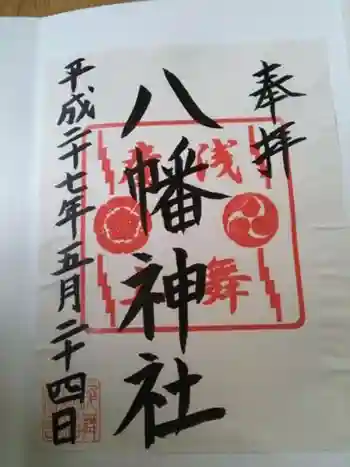 奉拝
八幡神社
平成二十七年五月二十四日
浅舞